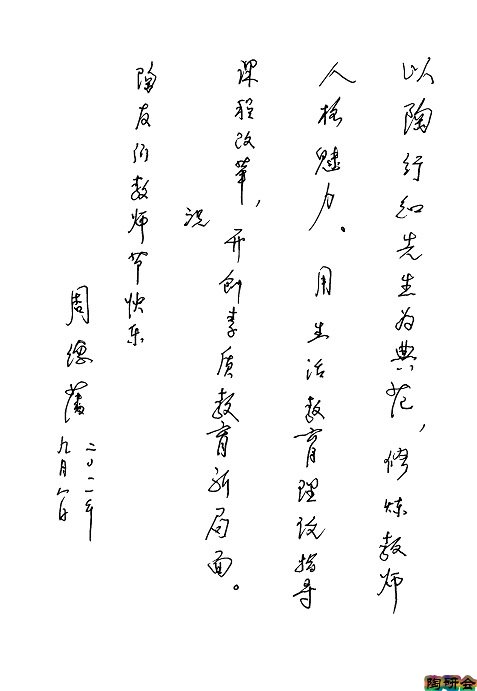 以陶行知先生为典范，修炼教师
人格魅力。用生活教育理论指导
课程改革，开创素质教育新局面。
祝
陶友们教师节快乐
周德藩
二〇一一年
九月八日
陶研会